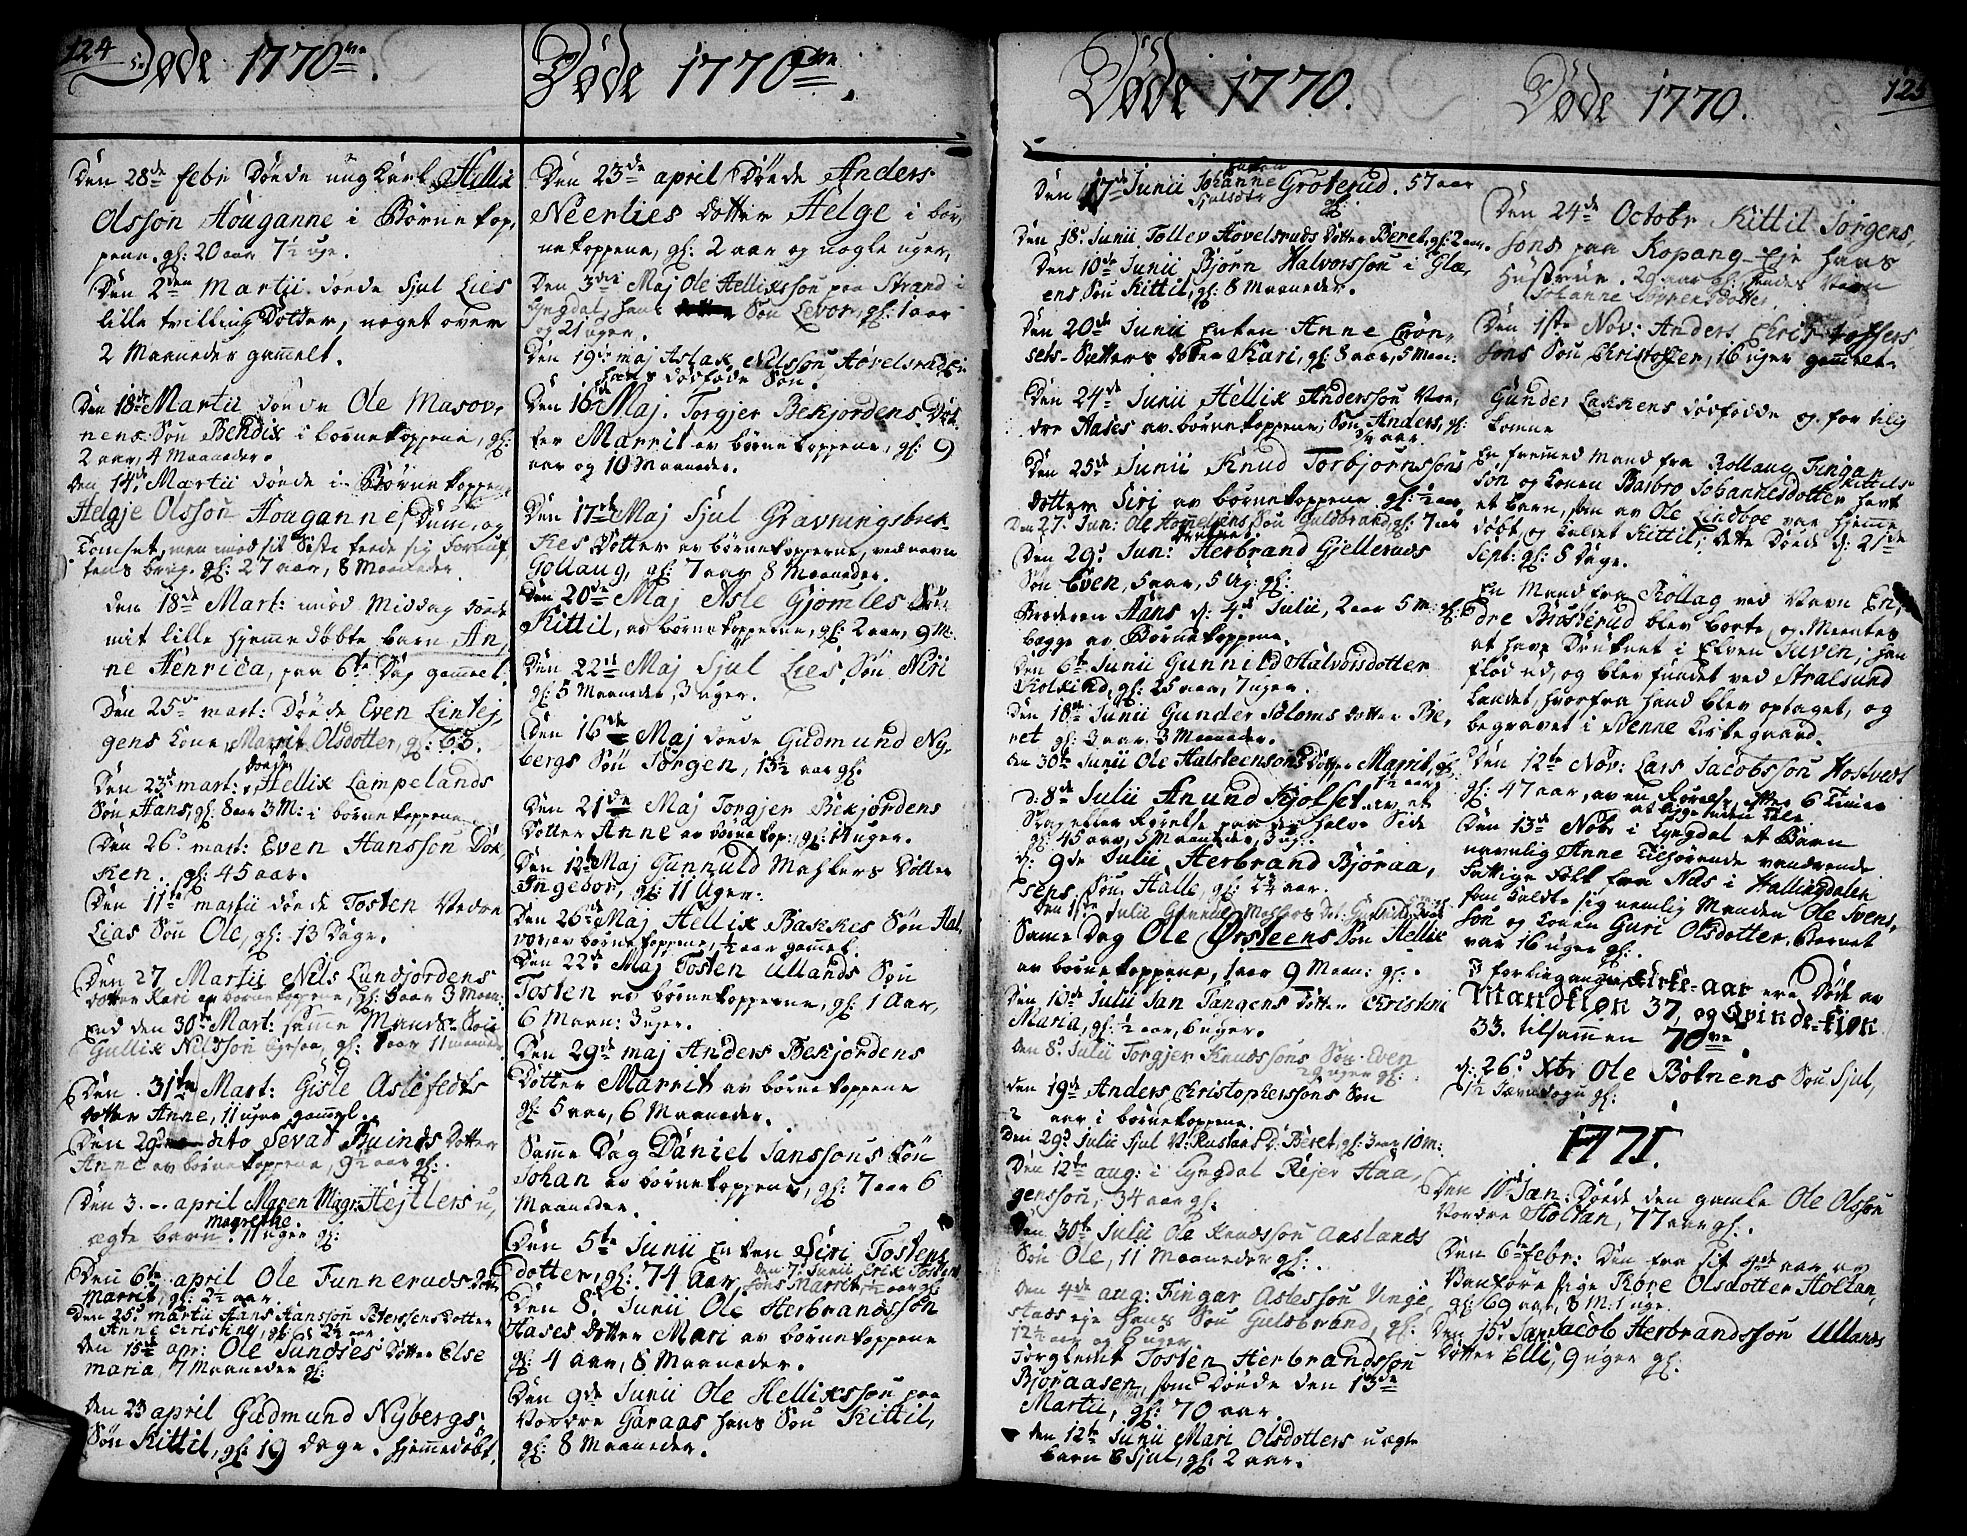 124
Døde 1770
Den 28de febr Døede ung Karl Hellix
Olsson Houganne i Børnekop,
pene. gl: 20 aar 7½ uge.
Den 2den Martii døede Sjul Lies
lille tvilling Dotter, noget over
2 Maaneder gammelt.
Den 18de Martii døede Ole Masov,
nens Søn Bendix i børnekoppene, gl:
2 aar, 4 Maaneder.
Den 14de Martii døede i Børnekoppene
Helgje Olsson Houganne, Dum, og
fens brug. gl: 27 aar, 8 Maaneder.
Den 18de Mart: imod Middag døede
mit lille hjemmedøbte barn An,
ne Henrica, paa 6te Dag gammel.
Den 25de mart: Døede Even Lintej,
gens Kone, Marrit Olsdotter, gl: 63.
Den 23de mart: døede Hellix Lampelands
Søn Hans, gl: 8 aar 3 M: i børnekoppene
Den 26de mart: Even Hansson Døk,
ken. gl: 45 aar.
Den 11te martii døede Tosten Vedre
Lias Søn Ole, gl: 13 Dage.
Den 27 Martii Nils Lundjordens
dotter Kari av børnekoppene, gl: 3 aar 3 Maan:
End den 30te Mart: samme Mands Søn
Gullix Nilsson ligesaa, gl: 1 aar 11 maaneder.
Den 31te Mart: Gisle Aslefedts
dotter Anne, 11 uger gammel.
Den 29de dito Sevad Ruinds Dotter
Anne av børnekoppene, 9½ aar gl:
Den 3. april Maren Magr. Hejtlers u,
magrethe.
ægte barn. 11 uger gl:
Den 6te april Ole Funneruds dotter
Marrit, gl: 2½ aar.
Den 25de martii Hans Hansson Peterssens dotter
Anne Cristine, gl: 2½ aar
Den 15de apr: Ole Sundses Dotter Else
maria, 7 Maaneder gl:
den 23 april Gudmund Nybergs
Søn Kittil, gl: 19 dage. hjemmedøbt.
Døde 1770
Den 23de april Døede Anders
Neerlies dotter Helge i bør,
nekoppene, gl: 2 aar og nogle uger,
Den 3die Maj Ole Hellixsson paa Strand i
Lyngdal, hans Søn Levor, gl: 1 aar
og 21 uger.
Den 19de maj Aslak Nilsson Hovelsrud
hans dødfødde Søn.
Den 16de Maj. Torgjer Bekjordens Dot
ter Marrit av børnekoppene, gl: 9
aar og 10 Maaneder.
Den 17de Maj Sjul Gravningsbak
kes Dotter av børnekoppene, ved navn
Gollaug, gl: 7 aar 8 Maaneder.
Den 20de Maj Asle Gjomles Søn
Kittil, av børnekoppene, gl: 2 aar, 9 M:
Den 22de Maj Sjul Lies Søn Niri
gl: 5 Maaneder, 3 uger.
Den 16de Maj døede Gudmund Ny,
bergs Søn Jørgen, 13½ aar gl.
Den 21de Maj Torgjer Bekjordens
Dotter Anne av børnekop: gl: 14 uger.
Den 12te Maj Gunnuld Mashlers Dotter
Ingebor, gl: 11 Uger.
Den 26de Maj Hellix Bakkes Søn Hal,
vor, av børnekoppene, ½ aar gammel.
Den 22de Maj Tosten Ullands Søn
Tosten av børnekoppene, gl: 1 Aar,
6 Maan: 3 uger.
Den 29de maj Anders Bekjordens
Dotter Marrit av børnekoppene
gl: 5 aar, 6 Maaneder.
Samme Dag Daniel Janssons Søn
Johan av børnekoppene, gl: 7 aar 6
Maaneder.
Den 5te Junii Enken Siri Tostens
dotter, gl: 74 aar. Den 7de Junii Erik Tosten
sons Marrit, ½ aar gl:
Den 8de Junii Ole Herbrandsson
Hases dotter Mari av børnekoppene
gl: 4 aar, 8 Maaneder.
Den 9de Junii Ole Hellixsson paa
Vordre Garaas hans Søn Kittil,
gl: 8 Maaneder.
Døde 1770.
Den 17de Junii Enken Johanne Groterud. 57 aar
Sjulsdotr gl:
Den 18de Junii Tollev Hovelsruds Dotter Beret, gl: 2 aar.
Den 10de Junii Bjørn Halvorsson i Glæ,
ens Søn Kittil, gl: 8 Maaneder.
Den 20de Junii Enken Anne Crøn,
sets-Sætters dotter Kari, gl: 8 aar, 5 Maan:
Den 24de Junii Hellix Andersson Vor,
dre Hases av børnekoppene, Søn Anders, gl:
Den 25de Junii Knud Torbjørnssons
dotter Siri av børnekoppene gl: ½ aar,
Den 27: Jun: Ole Homeliens Søn Guldbrand, gl: 7 aar
Den 29de Jun: Herbrand Gjelleruds
Søn Even, 5 aar, 5 Ug: gl:
Broderen Hans d: 4de Julii, 2 aar 5 M: gl:
begge av Børnekoppene.
Den 6te Junii Gunnild Halvorsdotter
Kolkind, gl: 25 aar, 7 uger.
Den 18de Junii Gunder Soloms dotter Be,
ret gl: 3 aar 3 Maaneder.
den 30te Junii Ole Halsteensons Dotter Marrit, gl:
1½ aar
d: 8de Julii Anund Kjolset av et
Slag eller Rørelse paa den halve Side
gl: 45 aar, 5 Maaneder, 3 ug:
d: 9de Julii Herbrand Bjøraa,
sens Søn Halle, gl: 2½ aar.
Den 1ste Julii Gunnul Mashlers
Samme Dag Ole Ørsteens Søn Hellix
av børnekoppene, 1 aar 9 Maan: gl:
Den 10de Julii Jan Tangens Dotter Christini
Maria, gl: ½ aar, 6 uger.
den 8de Julii Torgjer Knudssons Søn Even
29 uger gl:
den 19de Anders Christopherssons Søn
2 aar i børnekoppene.
Den 29de Julii Sjul V: Rustans D: Beret, gl: 3 aar 10 M:
Den 12te aug: i Lyngdal Rejer Haa,
gensson, 34 aar gl.
Den 30te Julii Ole Knudsson Aaslands
Søn Ole, 11 Maaneder gl:
Den 4de aug: Fingar Aslesson Unge,
stads eje hans Søn Gulbrand, gl:
12½ aar og 6 uger
Forglemt Tosten Herbrandssøn
Bjøraasen, som døede den 13de
Martii, gl: 70 aar.
den 12te Junii Mari Olsdotters uægte
barn Sjul, gl: 2 aar.
Døde 1770.
125
Den 24de Octobr Kittil Jørgens,
sons paa Kopang-Eje hans
Hustrue. 29 aar gl: hendes Navn
Johanne
Den 1ste Nov: Anders Christoffers
sons Søn Christoffer, 16 uger gammel.
Gunder Lakkens dødfødde og for tilig
komne
En fremmed Mand fra Rollaug Fingar Kittils-
søn og Konen Barbro Johannesdotter havt
et barn, som av Ole Lindboe var hjemme
døbt, og kaldet Kittil, dette Døede d: 21de
Sept: gl: 8 Dage.
En Mand fra Rollag ved Navn En,
dre Brosterud blev borte og Meentes
at have Druknet i Elven Luven, han
flød ud, og blev fundet ved Stralsund
landet, hvorfra hand blev optaget, og
begravet i Svenne Kirkegaard.
Den 12te Nov: Lars Jacobsson Hostvedt
gl: 47 aar, av en Rørelse, efter 6 Timer
Den 13de Nobr i Lyngdal et Barn
navnlig Anne tilhørende vandrende
fattige folk fra Næs i Hallingdalen
som kaldte sig nemlig Manden Ole Svens,
son og Konen Guri Olsdotter. Barnet
var 16 uger gl.
I forbigangne Kirke-aar ere Døde av
Mandkjøn 37, og Qvinde-Kjøn
33. tilsammen 70
d: 26de Xbr Ole Bolnens Søn Sjul,
gl:
1771.
Den 10de Jan: Døede den gamle Ole Olsson
Vordre Holtan, 77 aar gl.
Den 6te febr: Den fra sit 4de aar av
Vanføre pige Tore Olsdotter Holtan,
gl: 69 aar, 8 M: 1 uge.
Den 15de Jan Jacob Herbrandsson Ullands
Dotter Elli, 9 uger gl: